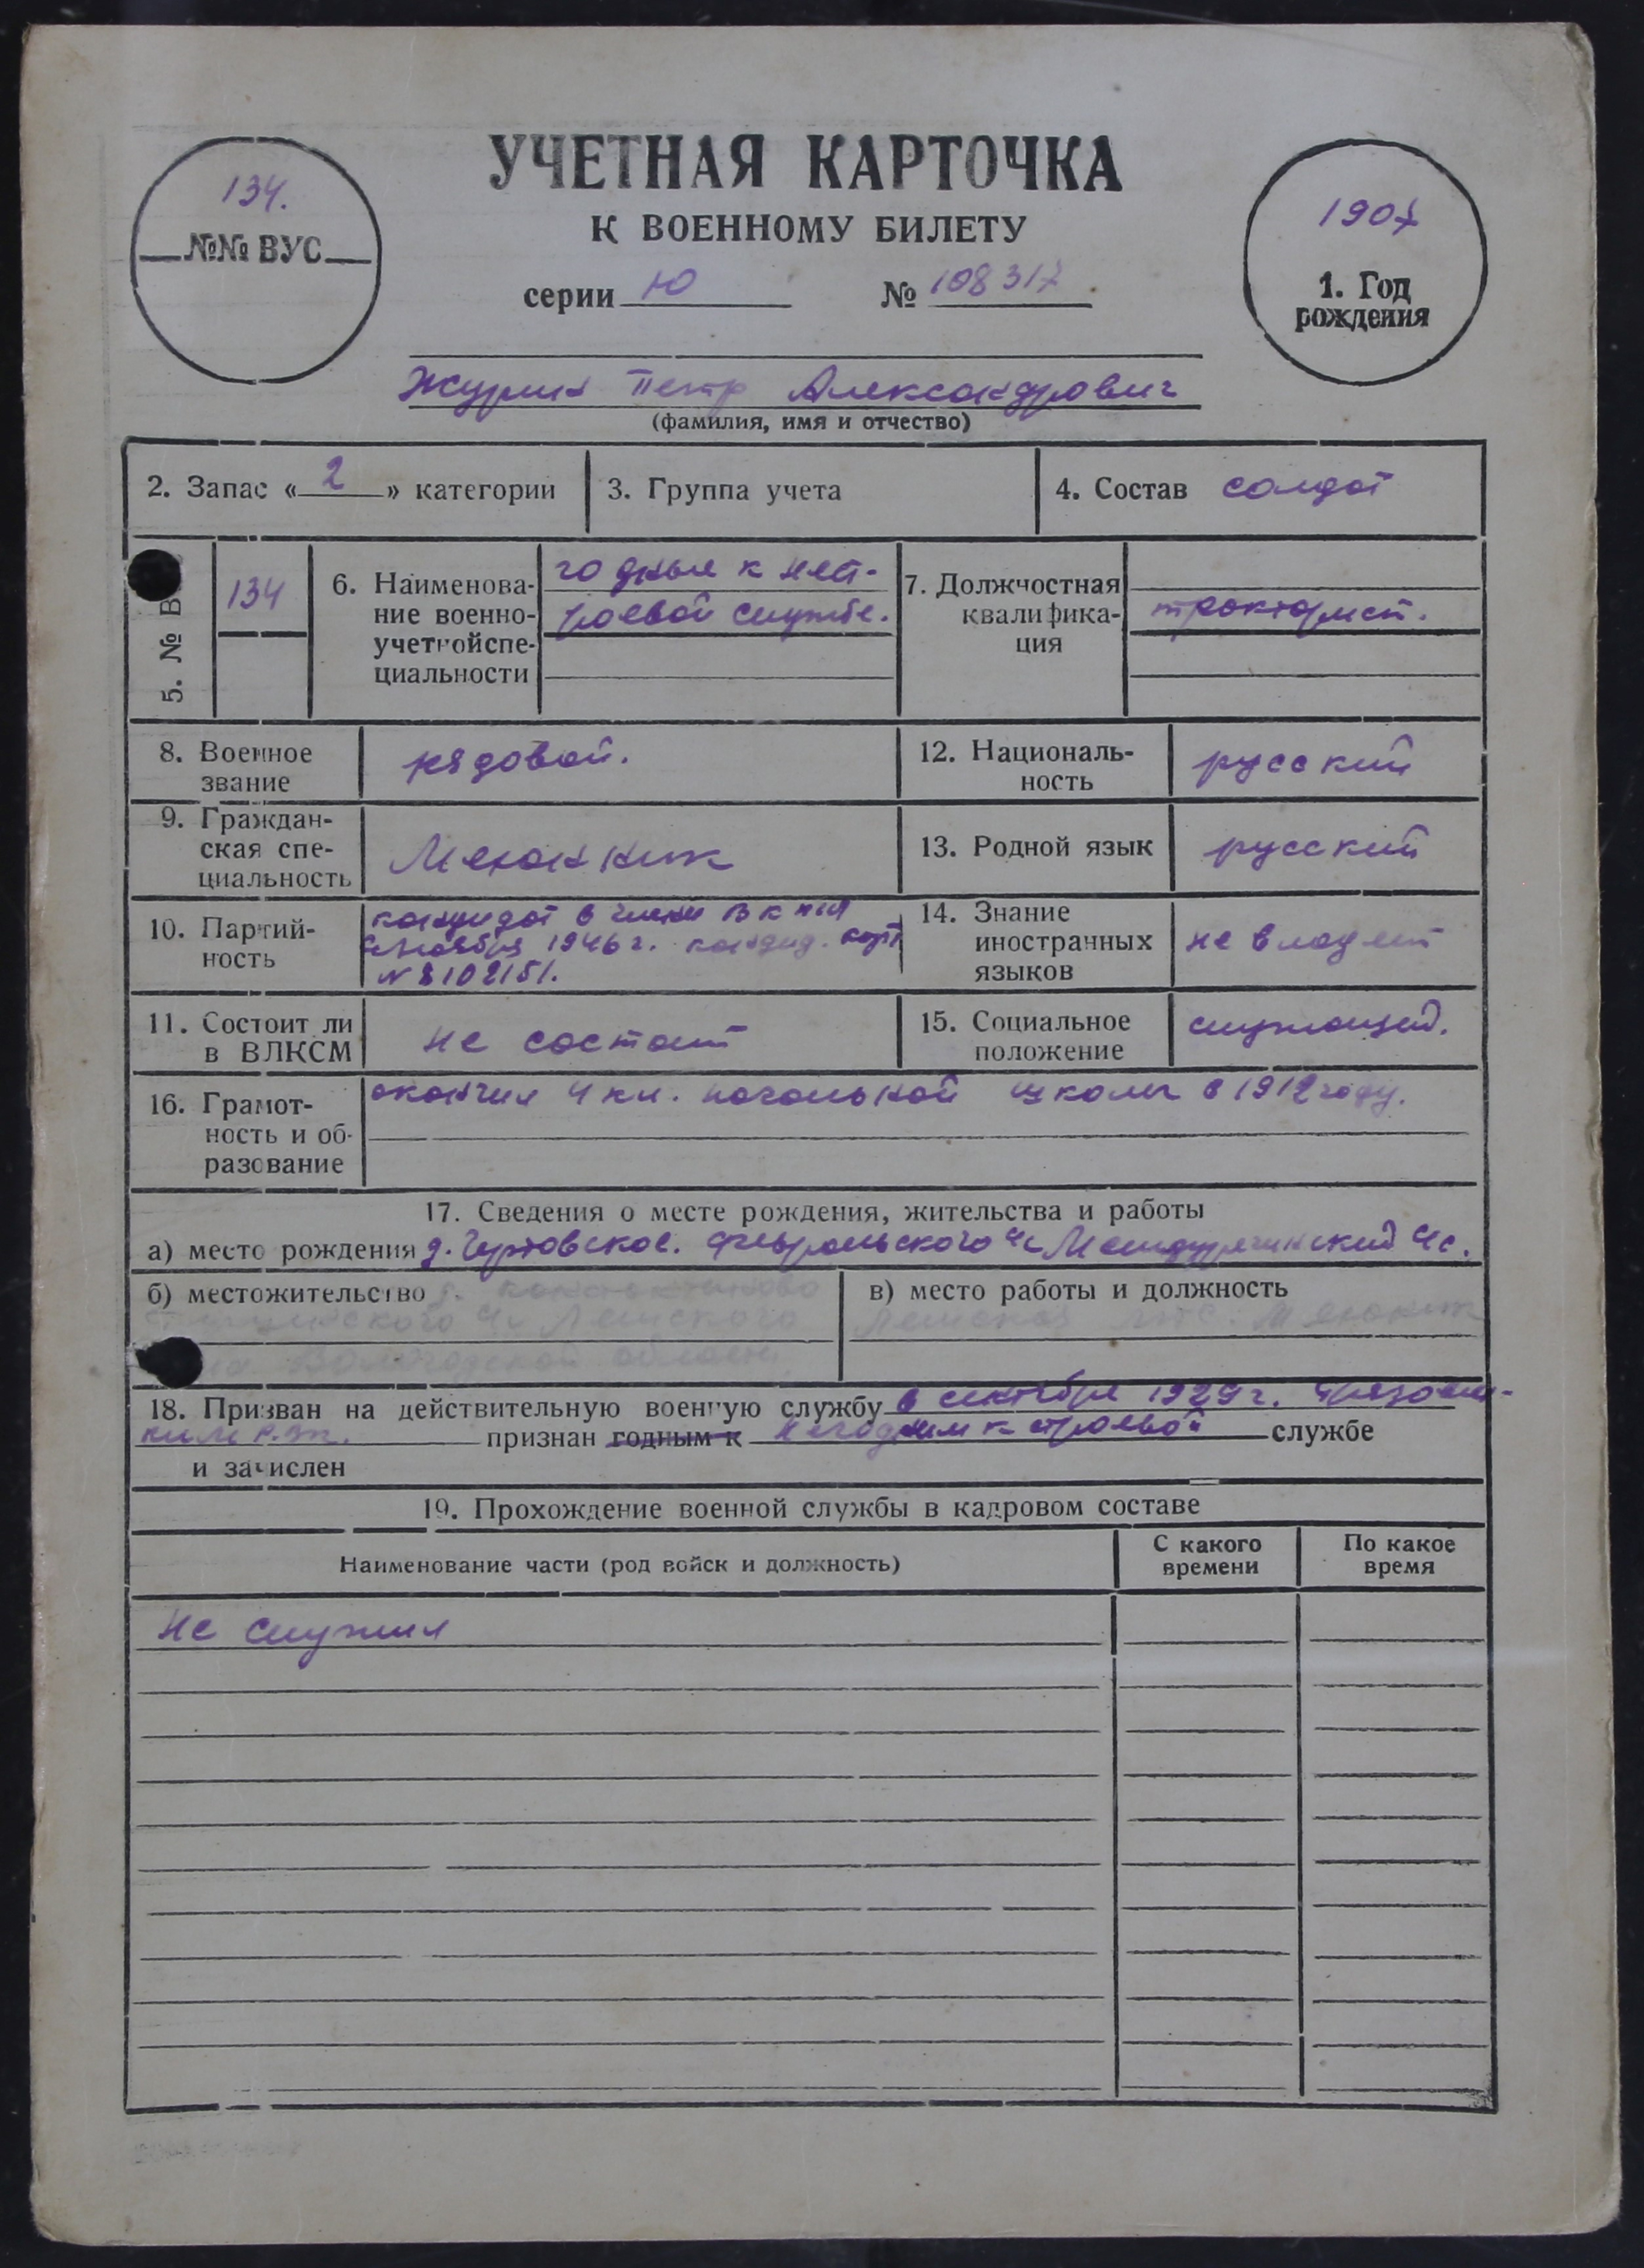 УЧЕТНАЯ КАРТОЧКА
К ВОЕННОМУ БИЛЕТУ
серии Ю № 108317
134.
№№ ВУС
1907
1. Год
рождения
Журин Петр Александрович
(фамилия, имя и отчество)
2. Запас « 2 » категории
3. Группа учета
4. Состав солдат
5. № В
134
6. Наименова-
ние военно-
учетной спе-
циальности
годные к нест-
роевой службе.
7. Должностная
квалифика-
ция
тракторист.
8. Военное
звание
рядовой.
12. Националь-
ность
русский
9. Граждан-
ская спе-
циальность
Механник
13. Родной язык
русский
10. Партий-
ность
кандидат в члены ВКП(б)
ноября 1946 г. кандид. карт
№ 8102151.
14. Знание
иностранных
языков
не владеет
11. Состоит ли
в ВЛКСМ
не состоит
15. Социальное
положение
служащий.
16. Грамот-
ность и об-
разование
окончил 4 кл. начальной школы в 1912 году.
17. Сведения о месте рождения, жительства и работы
а) место рождения д. Чертовское. Февральского
б) местожительство д.
Лежского
Вологодской области
в) место работы и должность
Лежская МТС. Механик
18. Призван на действительную военную службу в сентябре 1929 г. Грязовец-
ким РВК. признан годным к негодным к строевой службе
и зачислен
19. Прохождение военной службы в кадровом составе
Наименование части (род войск и должность)
С какого
времени
По какое
время
не служил